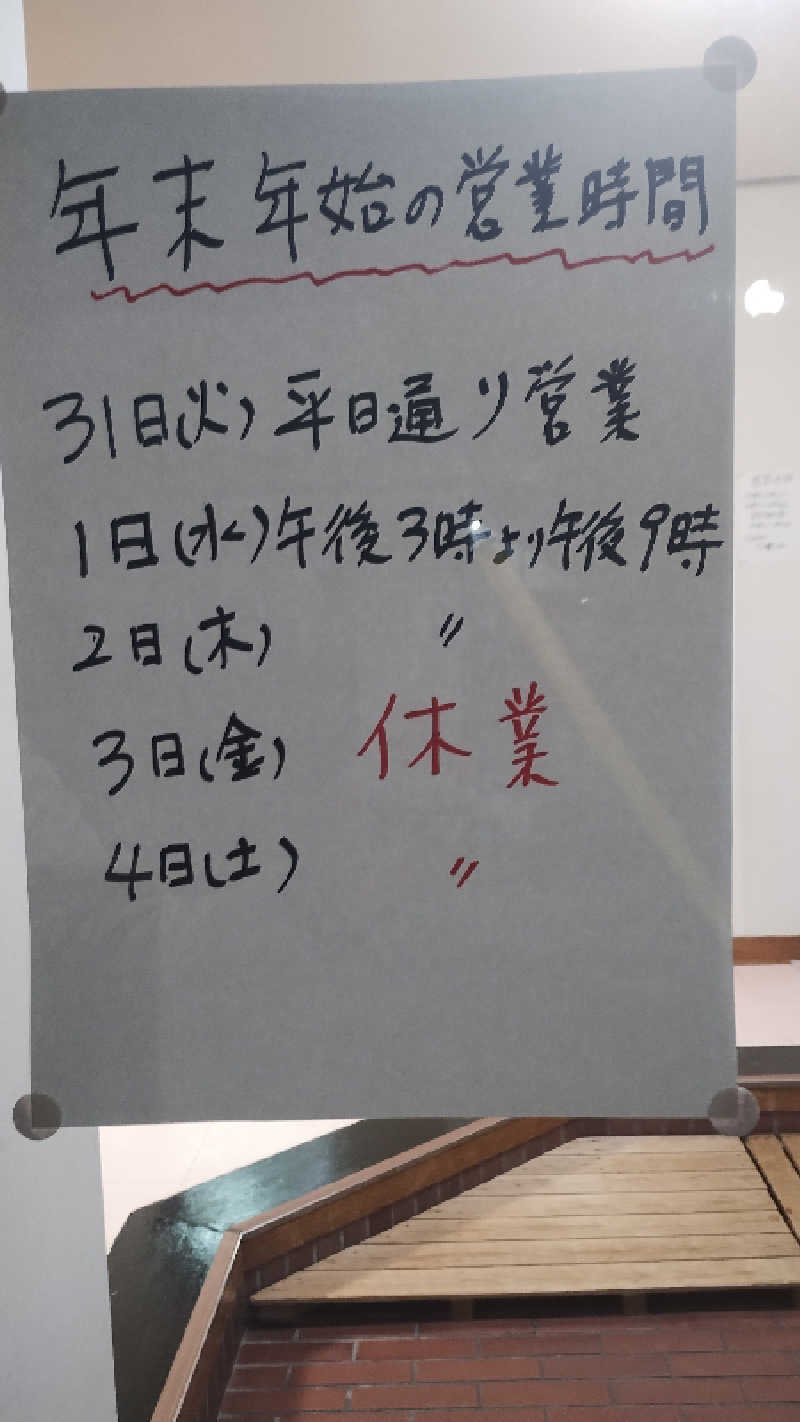 年末年始の営業時間
31日(火) 平日通り営業
1日(水)午後3時より午後9時
2日(木) 〃
3日(金) 休業
4日(土) 〃